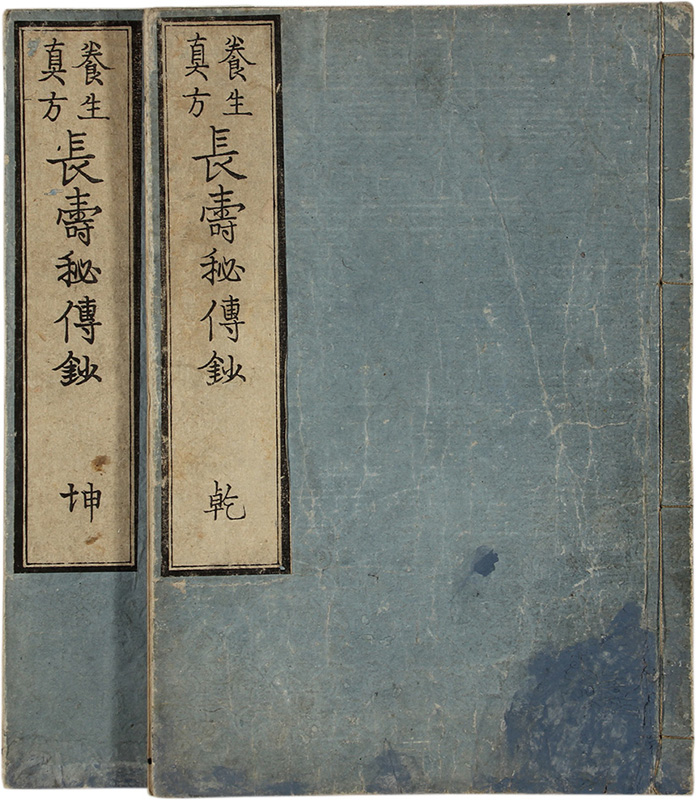 養生
真方
長壽秘傳鈔
乾
養生
真方
長壽秘傳鈔
坤